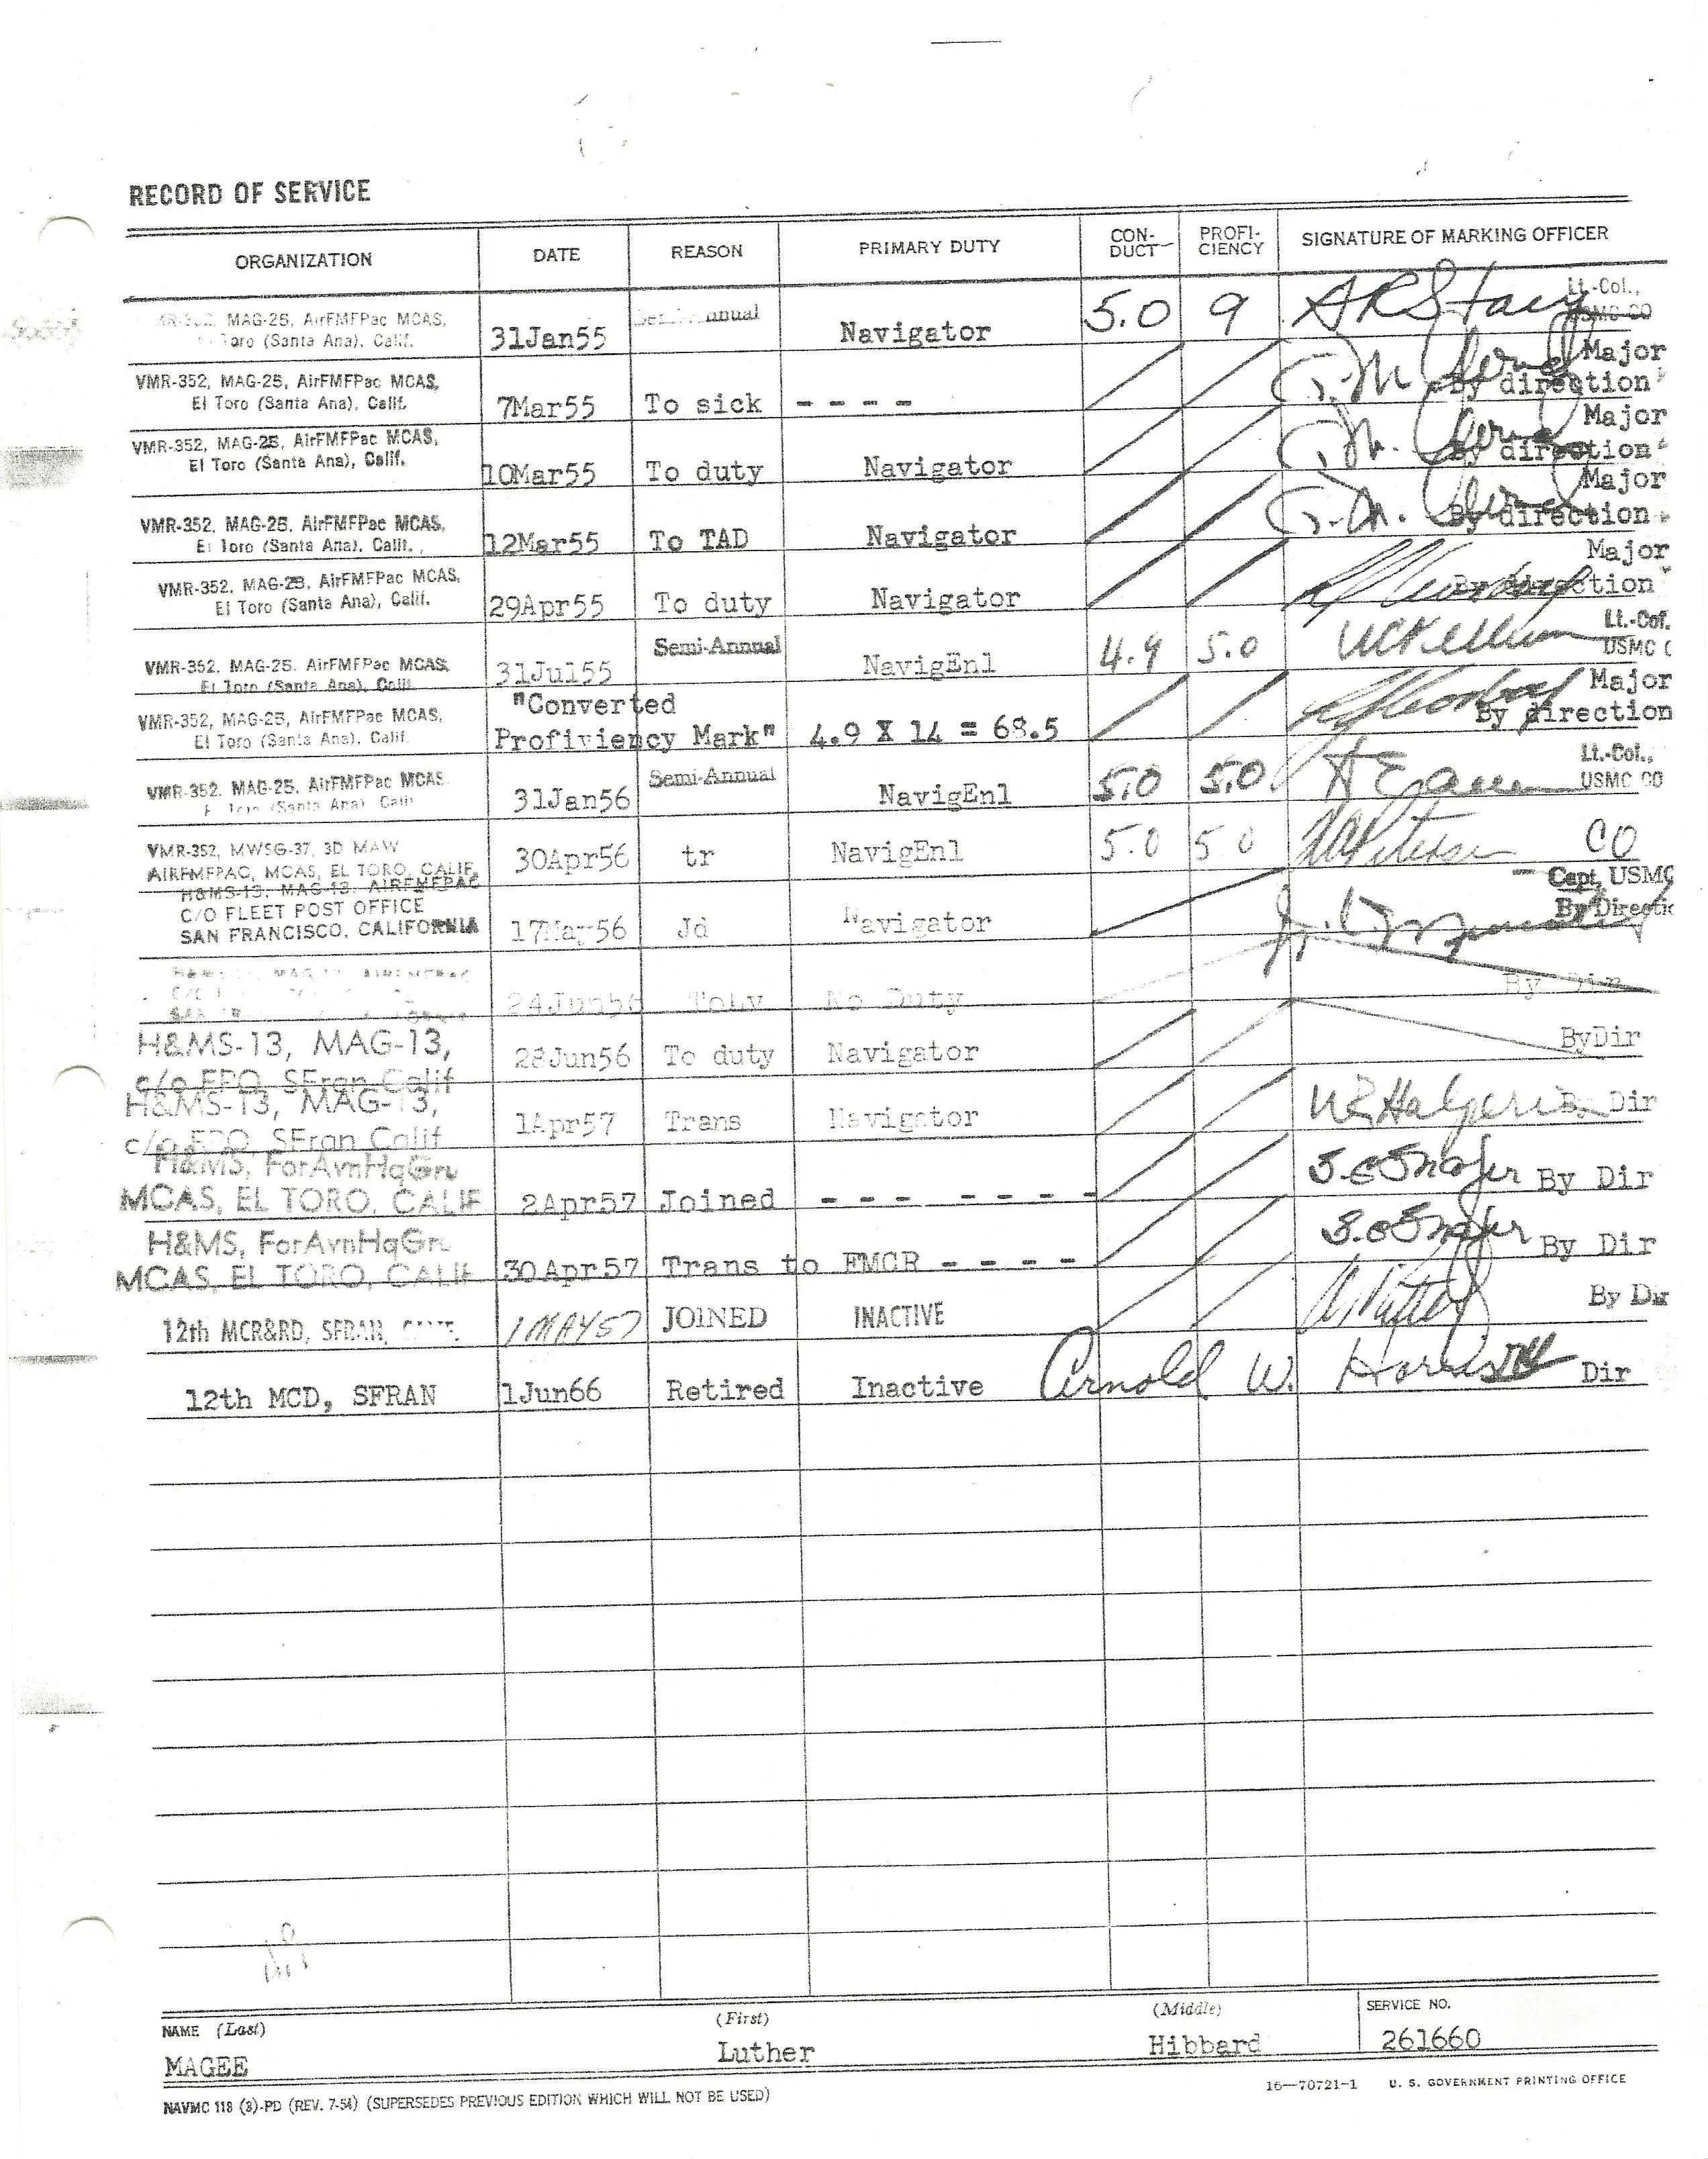 RECORD OF SERVICE
ORGANIZATION DATE REASON PRIMARY DUTY CON-DUCT PROFI-CIENCY SIGNATURE OF MARKING OFFICER
MAG-25, AirFMFPac MCAS, Lt.-Col.,
(Santa Ana), Calif. 31Jan55 Semi-Annual Navigator 5.0 9 USMC CO
VMR-352, MAG-25, AirFMFPac MCAS, Major
El Toro (Santa Ana), Calif. 7Mar55 To sick - - - - By direction
VMR-352, MAG-25, AirFMFPac MCAS, Major
El Toro (Santa Ana), Calif. 10Mar55 To duty Navigator By direction
VMR-352, MAG-25, AirFMFPac MCAS, Major
El Toro (Santa Ana), Calif. 12Mar55 To TAD Navigator By direction
VMR-352, MAG-25, AirFMFPac MCAS, Major
El Toro (Santa Ana), Calif. 29Apr55 To duty Navigator By direction
Semi-Annual Lt.-Col.
VMR-352, MAG-25, AirFMFPac MCAS, 31Jul55 NavigEnl 4.9 5.0 USMC C
El Toro (Santa Ana), Calif.
"Converted Major
VMR-352, MAG-25, AirFMFPac MCAS, By direction
El Toro (Santa Ana), Calif. Profiviency Mark" 4.9 X 14 = 68.5
Semi-Annual Lt.-Col.,
VMR-352, MAG-25, AirFMFPac MCAS 31Jan56 NavigEnl 5.0 5.0 USMC CO
El Toro (Santa Ana) Calif
VMR-352, MWSG-37, 3D MAW 30Apr56 tr NavigEnl 5.0 5.0 CO
AIRFMFPAC, MCAS, EL TORO, CALIF.
H&MS-13, MAG-13, AIRFMFPAC Capt, USMC
C/O FLEET POST OFFICE By Directio
SAN FRANCISCO, CALIFORNIA 17May56 Jd Navigator
24Jun56 No Duty By Dir
H&MS-13, MAG-13, 28Jun56 To duty Navigator ByDir
c/o FPO, SFran Calif
H&MS-13, MAG-13, 1Apr57 Trans Navigator By Dir
c/o FPO, SFran Calif
H&MS, ForAvnHqGru
MCAS, EL TORO, CALIF 2Apr57 Joined - - - - - - - By Dir
H&MS, ForAvnHqGru
MCAS, EL TORO, CALIF 30Apr57 Trans to FMCR - - - - By Dir
12th MCR&RD, SFRAN, 1MAY57 JOINED INACTIVE By Dir
12th MCD, SFRAN 1Jun66 Retired Inactive Arnold W. Harris Dir
NAME (Last) (First) (Middle) SERVICE NO.
MAGEE Luther Hibbard 261660
NAVMC 118 (3)-PD (REV. 7-54) (SUPERSEDES PREVIOUS EDITION WHICH WILL NOT BE USED) 16—70721-1 U. S. GOVERNMENT PRINTING OFFICE